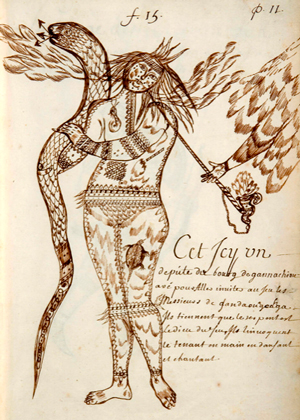 f. 15.
P. 11.
Cet Icy un
depute du bourg de gannachiou
avé pour aller invites au jeu les
Messieurs de gandaouagoahga
ils tiennent que le serpent est
le dieu du feu ils linvoquent
le tenant en main en dansant
et chantant.